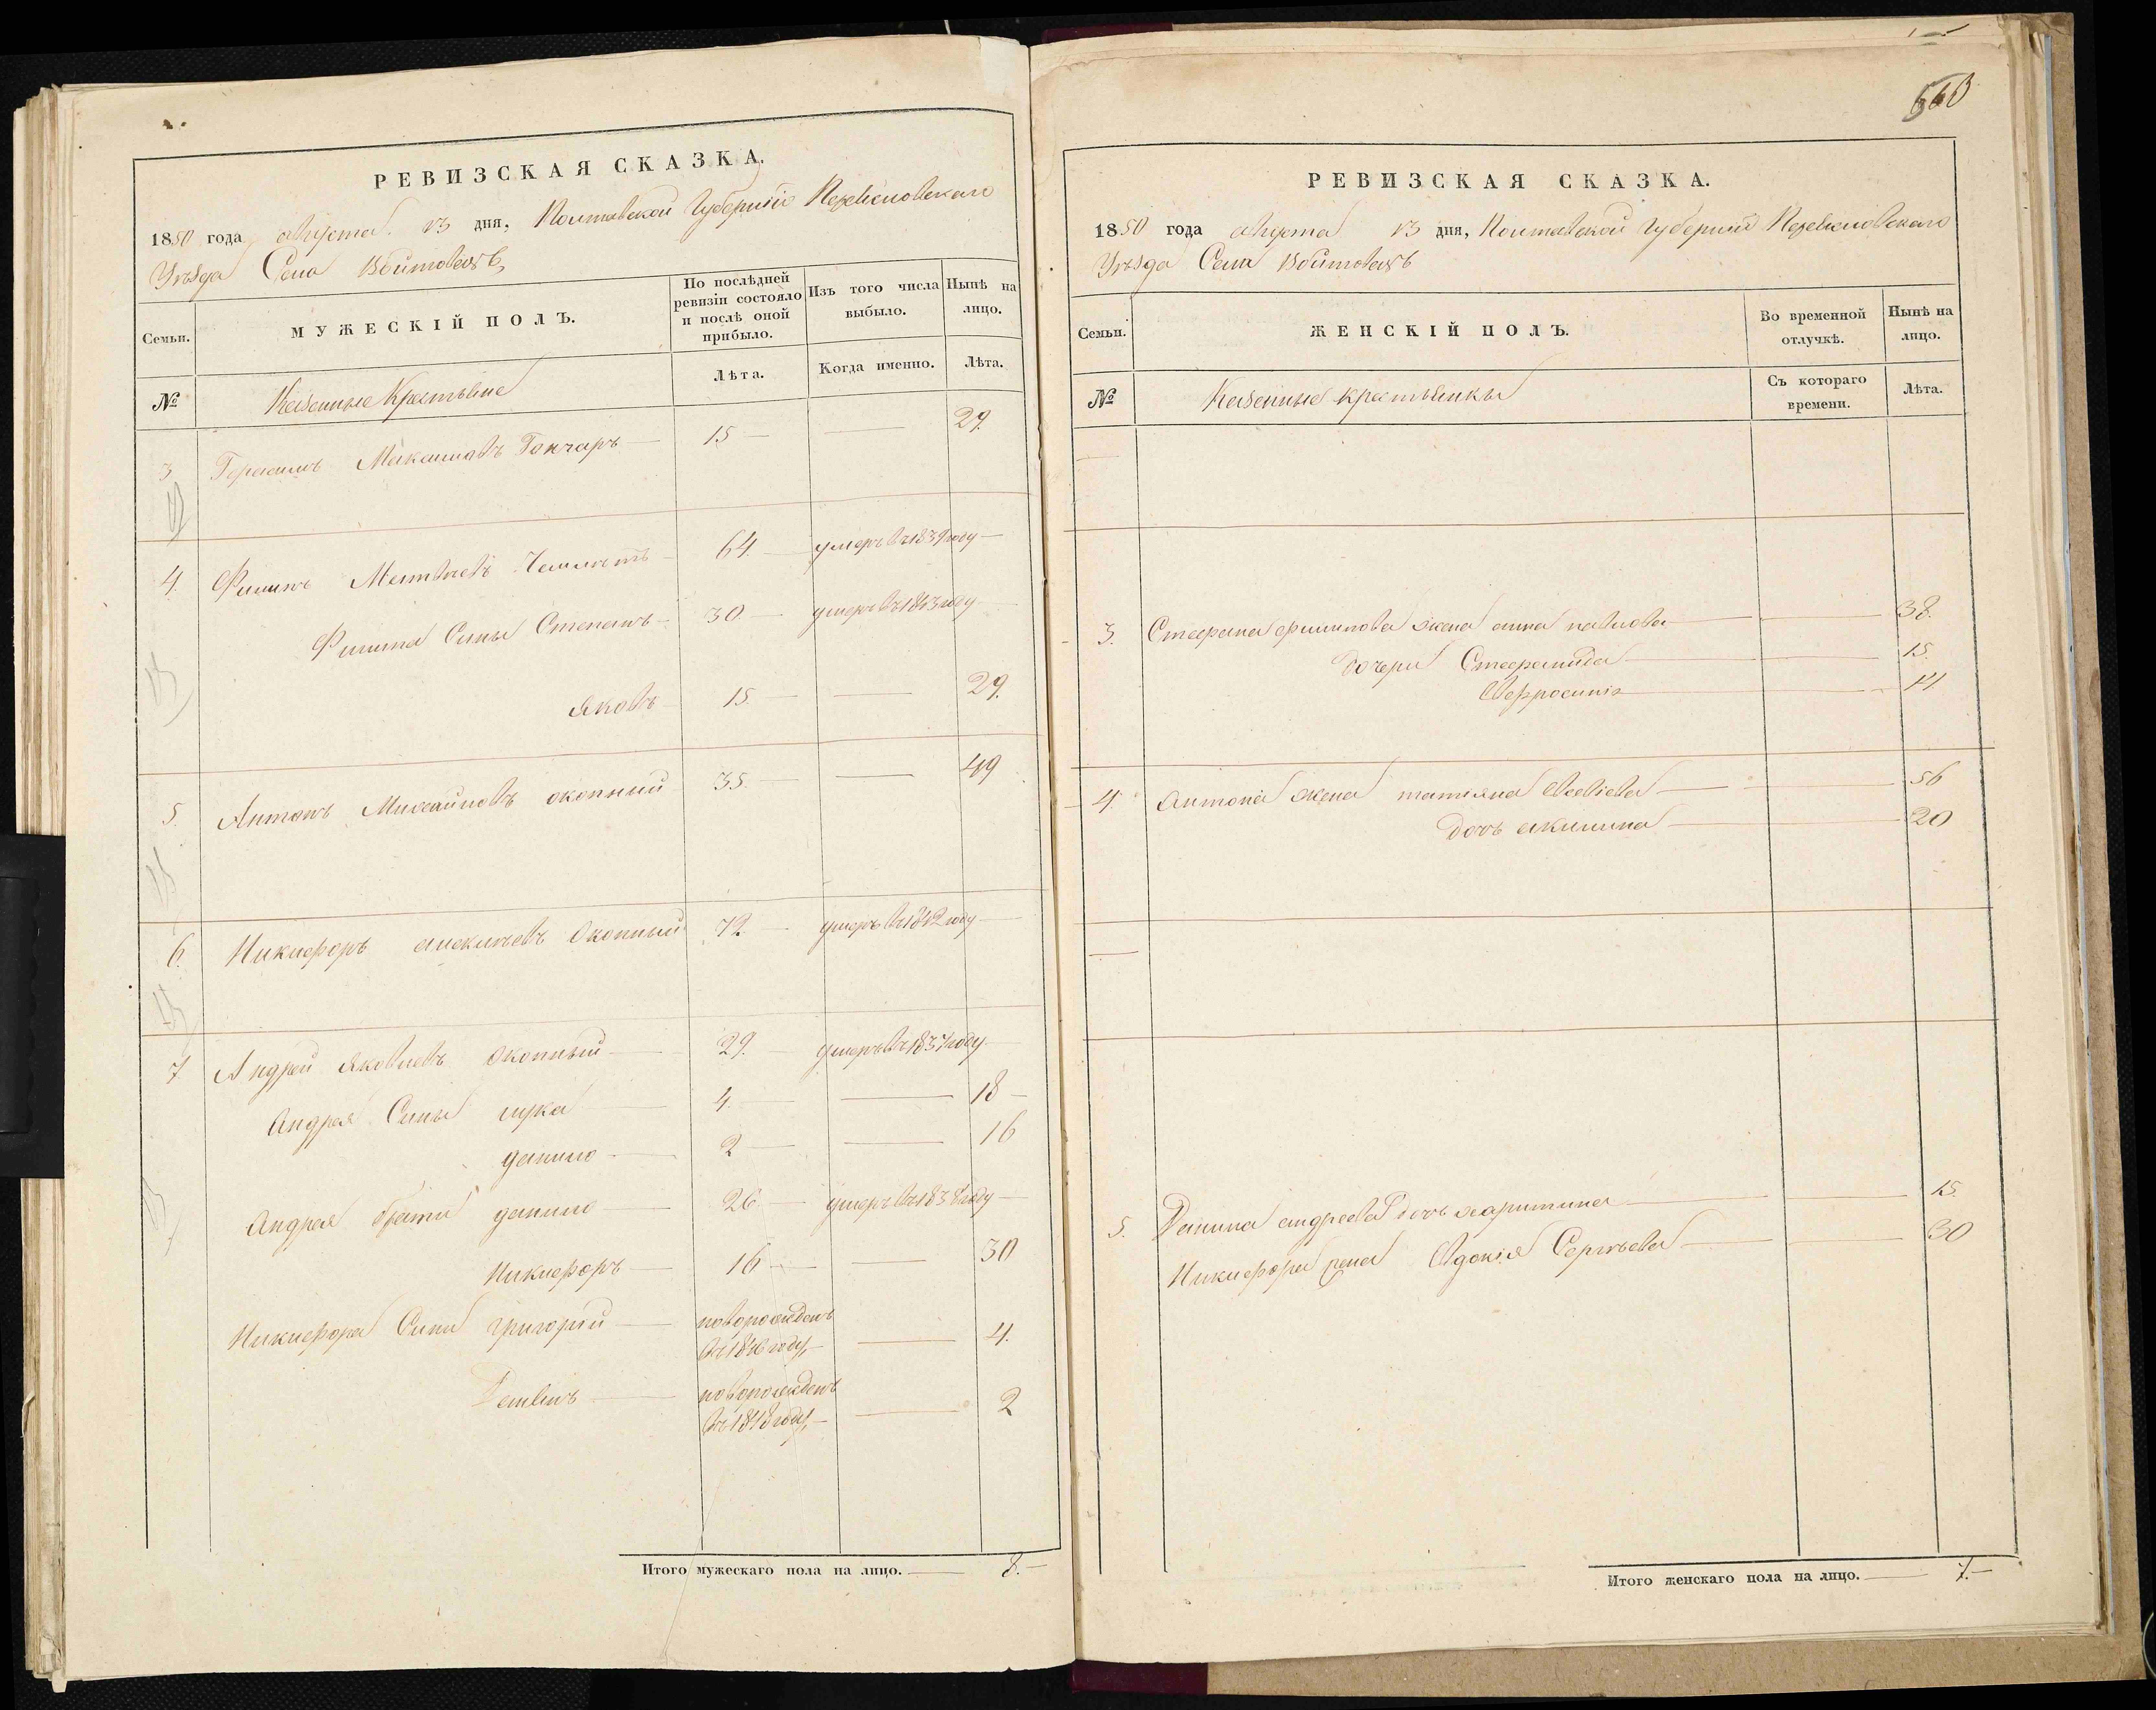 РЕВИЗСКАЯ СКАЗКА.
1850 года августа 13 дня, Полтавской Губернии Переяславского
Уѣзда Села Войтовецъ
Семьи.
МУЖЕСКІЙ ПОЛЪ.
По послѣдней ревизіи состояло и послѣ оной прибыло.
Изъ того числа выбыло.
Нынѣ на лицо.
№
Казенные Крестьяне
Лѣта.
Когда именно.
Лѣта.
3 Герасимъ Максимовъ Гончаръ 15 29.
4. Филипъ Матвѣевъ 64. умеръ въ 1839 году
Филипа Сыны Степанъ 30. умеръ въ 1843 году
Яковъ 15. 29.
5. Антонъ Михайловъ Окопный 35. 49
6. Никифоръ Алексѣевъ Окопный 72. умеръ въ 1842 году
7 Андрей Яковлевъ Окопный 29. умеръ въ 1837 году
Андрея Сыны лука 4. 18
данило 2 16
Андрея братья данило 26. умеръ въ 1838 году
Никифоръ 16 30
Никифора Сыны григорій новорожденъ въ 1846 году 4.
новорожденъ въ 1848 году 2
Итого мужескаго пола на лицо. 8.
660
РЕВИЗСКАЯ СКАЗКА.
1850 года августа 13 дня, Полтавской Губернии Переяславского
Уѣзда Села Войтовецъ
Семьи.
ЖЕНСКІЙ ПОЛЪ.
Во временной отлучкѣ.
Нынѣ на лицо.
№
Казенные крестьянки
Съ котораго времени.
Лѣта.
3. Стефана филипова жена анна павлова 38.
дочери Стефанида 15.
Евфросинія 14
4. Антона жена татияна 56
дочь акилина 20
5. Данила андреева дочь харитина 15.
Никифора жена Евдокія Сергѣева 30
Итого женскаго пола на лицо. 7.